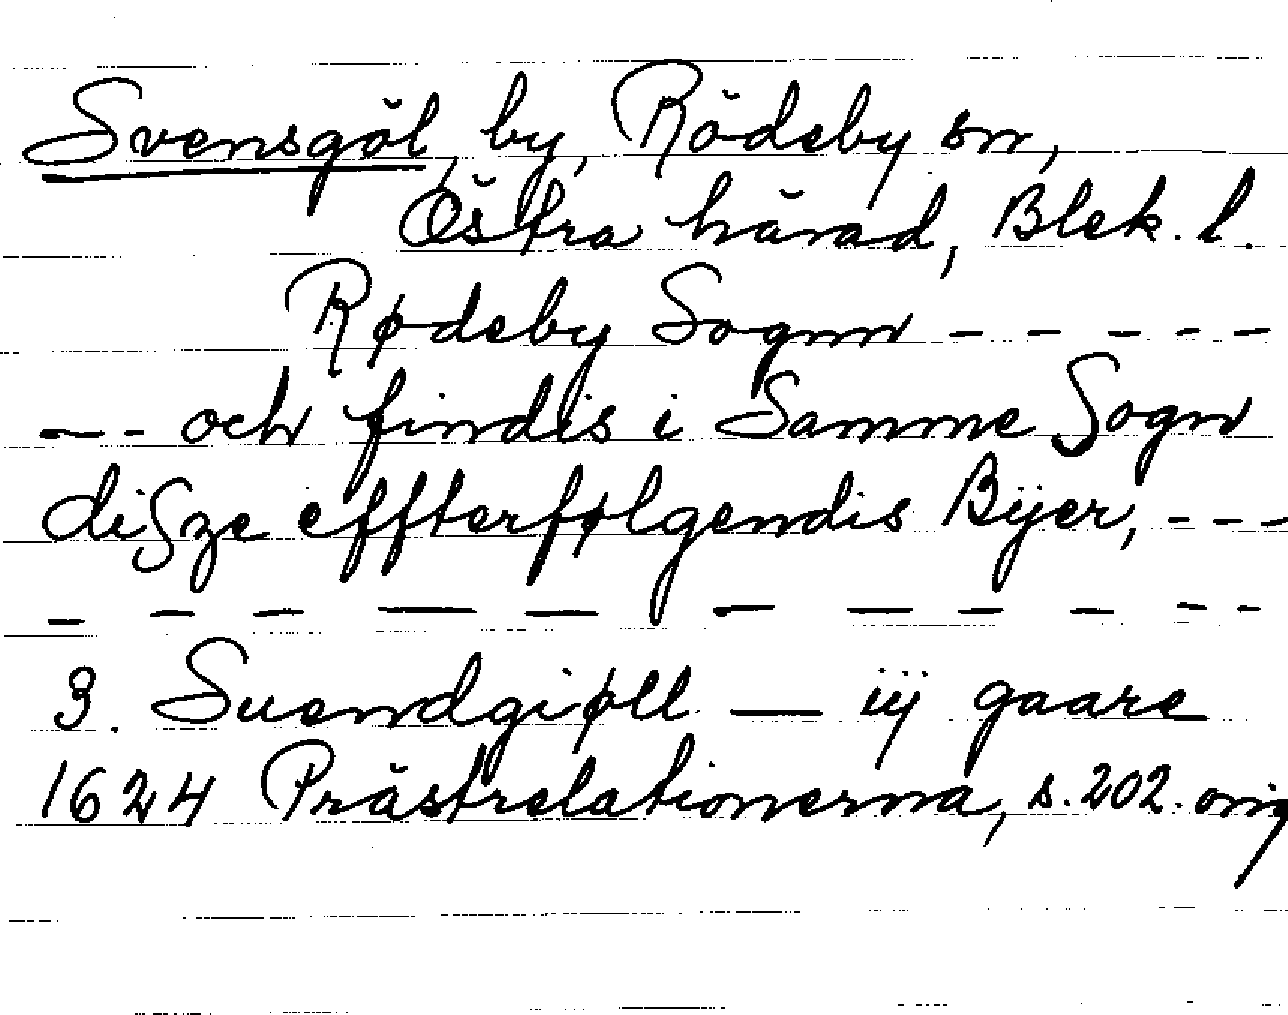 Svensgöl, by, Rödeby sn,
Östra härad, Blek. l.
Rødeby Sognn - - - - -
-- - och findis i Samme Sogn
disze effterfølgendis Bÿer, - - -
- - - - - - - - - - -
3. Suendgiøll — iij gaare
1624 Prästrelationerna, s. 202. orig